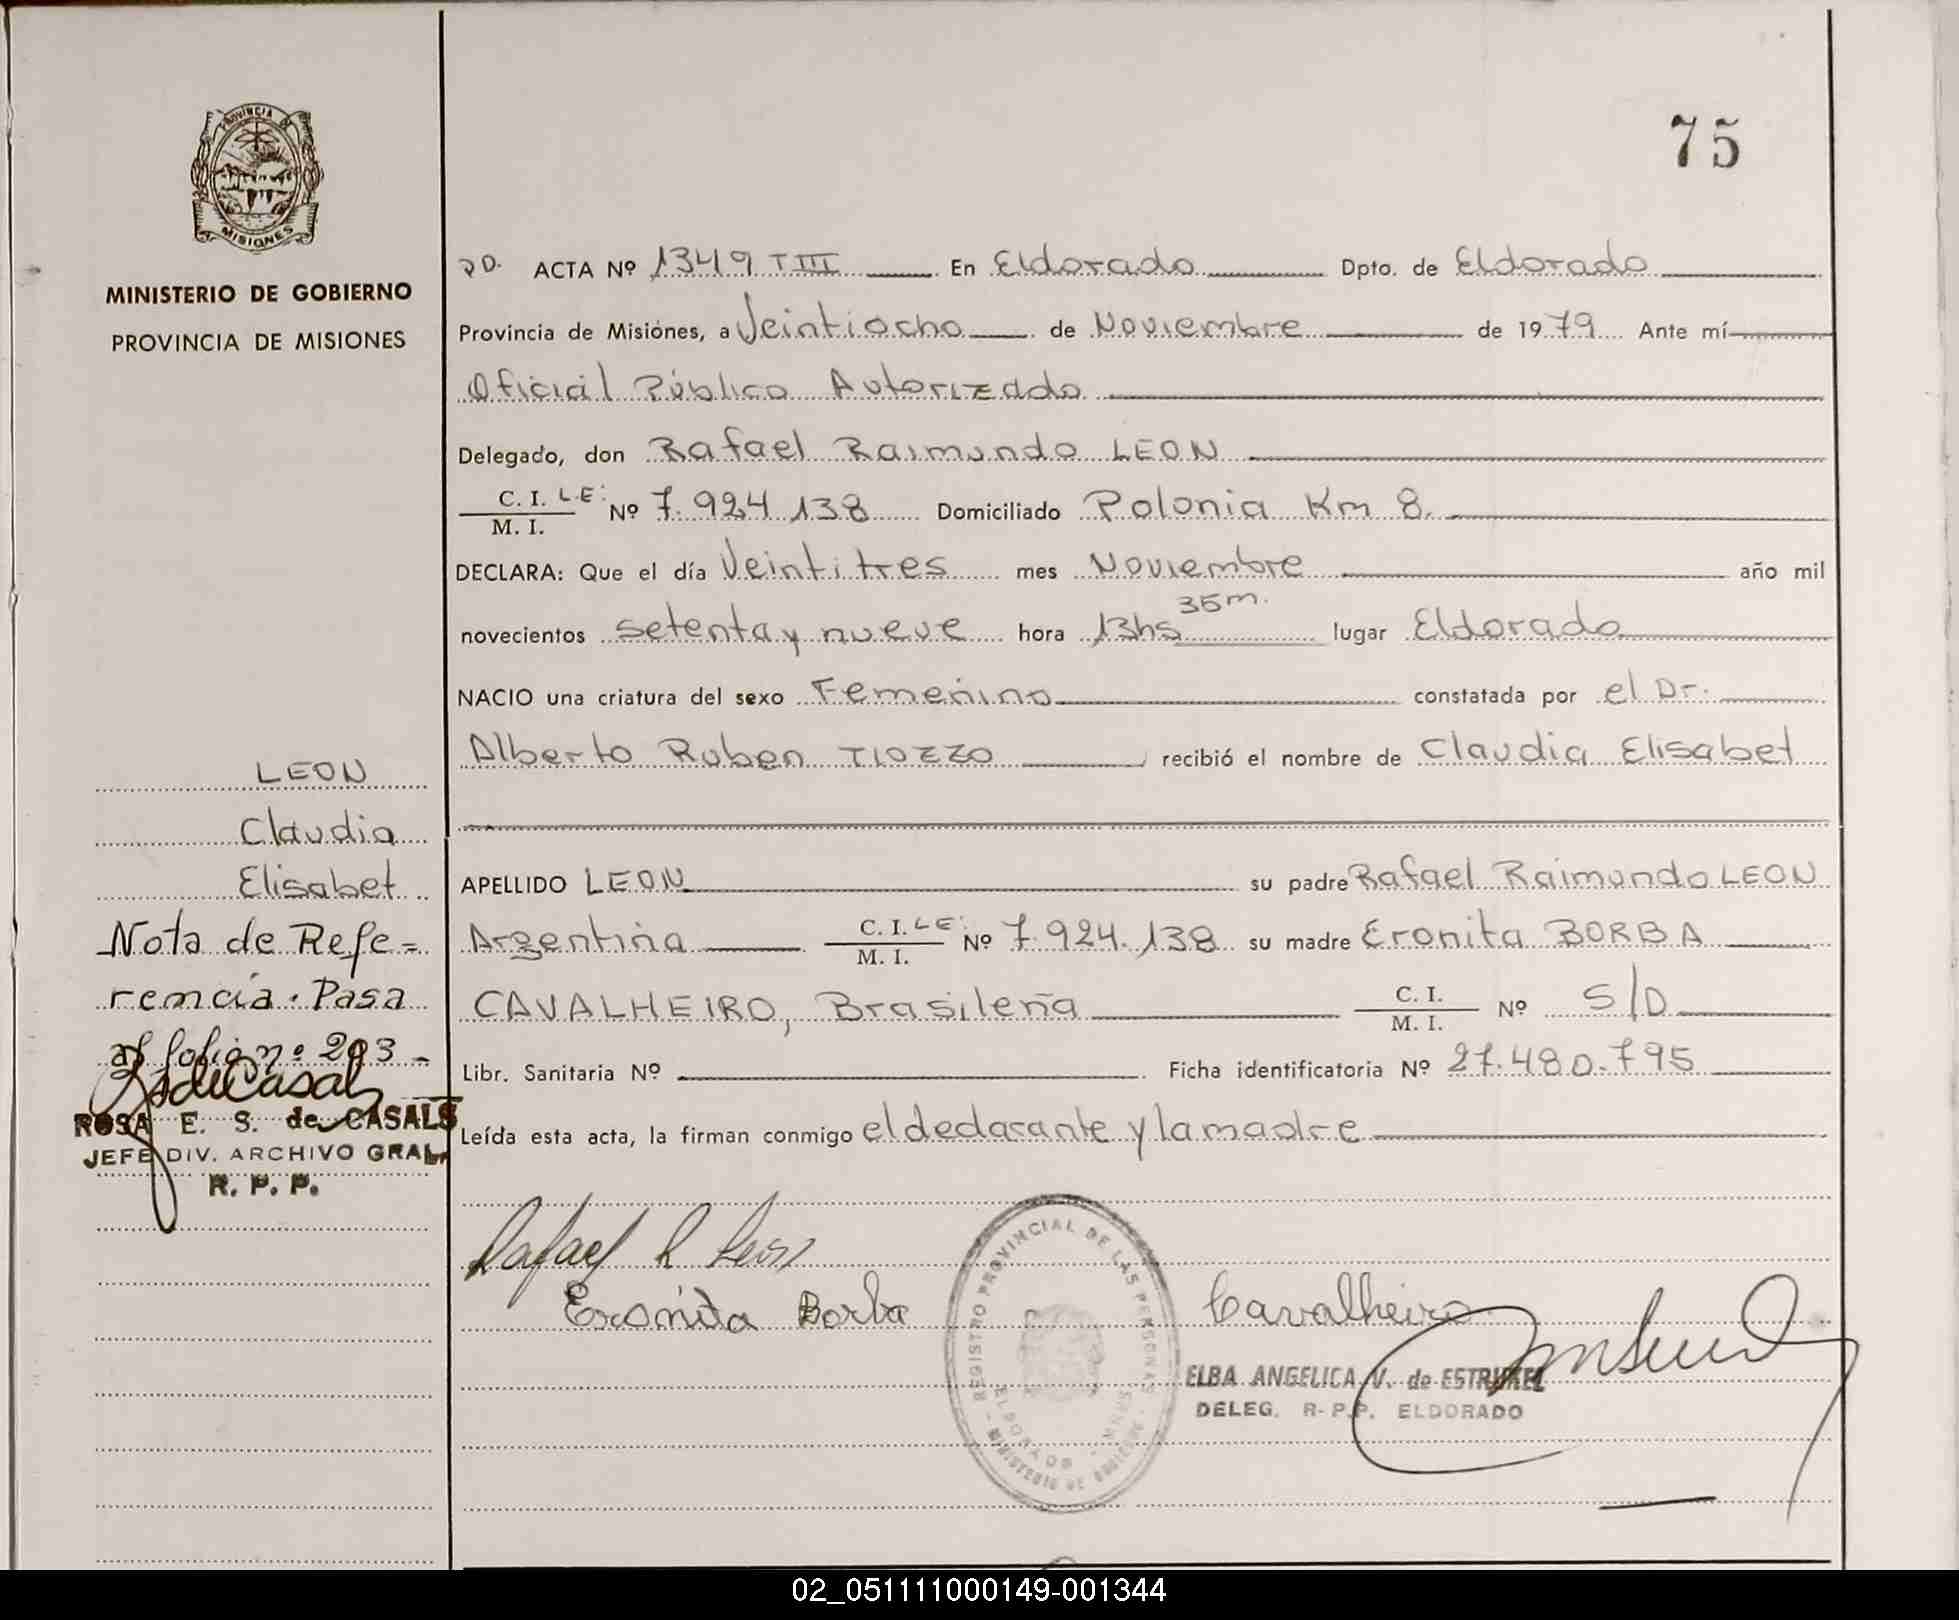 PROVINCIA DE
MISIONES
MINISTERIO DE GOBIERNO
PROVINCIA DE MISIONES
75
ACTA Nº 1349 TIII En Eldorado Dpto. de Eldorado
Provincia de Misiónes, a Veintiocho de Noviembre de 1979 Ante mí
Oficial Público Autorizado
Delegado, don Rafael Raimundo LEON
C. I. L.E: Nº 7.924.138 Domiciliado Polonia Km 8.
M. I.
DECLARA: Que el día Veintitres mes Noviembre año mil
novecientos setenta y nueve hora 13hs 35m. lugar Eldorado
NACIO una criatura del sexo Femenino constatada por el Dr.
Alberto Ruben TIOZZO recibió el nombre de Claudia Elisabet
APELLIDO LEON su padre Rafael Raimundo LEON
Argentina C. I. L E: Nº 7.924.138 su madre Eronita BORBA
M. I.
CAVALHEIRO, Brasileña C. I. Nº S/D
M. I.
Libr. Sanitaria Nº Ficha identificatoria Nº 27.480.795
Leída esta acta, la firman conmigo el declarante y la madre
LEON
Claudia
Elisabet
Nota de Refe=
rencia. Pasa
al folio nº 293-
ROSA E. S. de CASALS
JEFE DIV. ARCHIVO GRAL.
R. P. P.
Rafael R Leon
Eronita Borba Cavalheiro
REGISTRO PROVINCIAL DE LAS PERSONAS
MINISTERIO DE GOBIERNO
ELDORADO
ELBA ANGELICA V. de
DELEG. R-P.P. ELDORADO
02_051111000149-001344